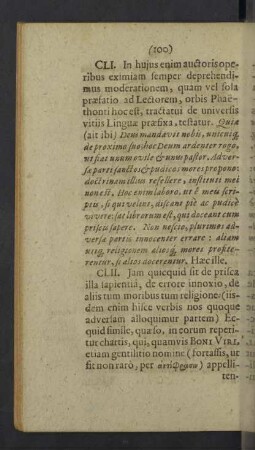 (100)
CLI. In hujus enim auctoris ope-
ribus eximiam semper deprehendi-
mus moderationem, quam vel sola
præfatio ad Lectorem, orbis Phaë-
thonti hoc est, tractatui de universis
vitiis Linguæ præfixa, testatur. Quia
(ait ibi) Deus mandavit nobis, unicuiq;
de proximo suo: hoc Deum ardenter rogo,
ut fiat unum ovile & unus pastor. Adver-
sæ parti sanctos & pudicos mores propono:
doctrinam illius refellere, instituti mei
non est. Hoc enim laboro, ut è meu scri-
ptis, si qui velint, discant piè ac pudicè
vivere: sat librorum est, qui doceant cum
prisci sapere. Non nescio, plurimos ad-
versæ partis innocenter errare: aliam
utiq; religionem aliosq; mores profite-
rentur, si alios docerentur. Hæc ille.
CLII. Jam quicquid sit de prisca
illa sapientiâ, de errore innoxio, de
aliis tum moribus tum religione (iis-
dem enim hisce verbis nos quoque
adversam alloquimur partem) Ec-
quid simile, quæso, in eorum reperi-
tur chartis, qui, quamvis BONI VIRI,
etiam gentilitio nomine (fortassis, ut
fit non rarò, per ἀντίφρασιν) appelli-
ten-